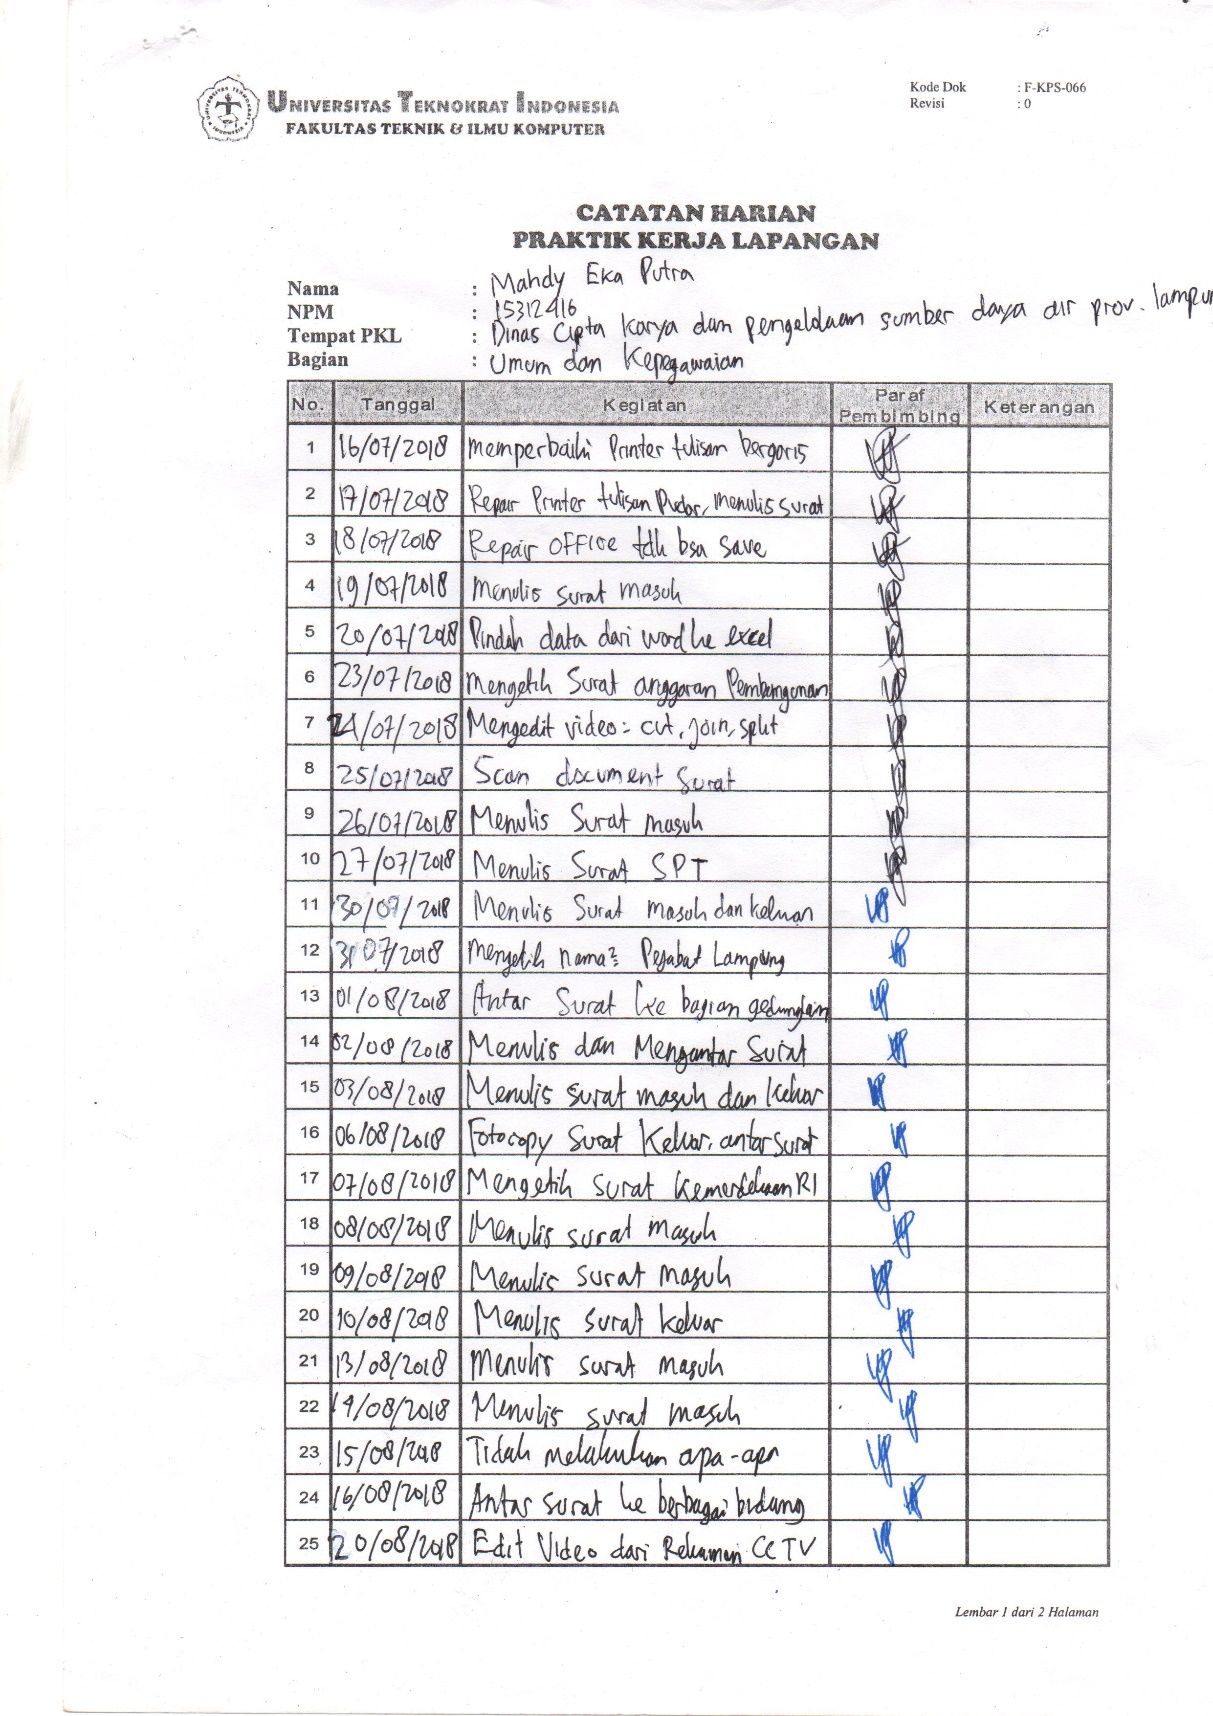 UNIVERSITAS TEKNOKRAT INDONESIA
FAKULTAS TEKNIK & ILMU KOMPUTER
Kode Dok : F-KPS-066
Revisi : 0
CATATAN HARIAN
PRAKTIK KERJA LAPANGAN
Nama : Mahdy Eka Putra
NPM : 15312416
Tempat PKL : Dinas Cipta Karya dan pengelolaan sumber daya air prov. lampun
Bagian : Umum dan Kepegawaian
No. Tanggal Kegiatan Paraf Pembimbing Keterangan
1 16/07/2018 memperbaiki Printer tulisan bergaris
2 17/07/2018 Repair Printer tulisan Pudar, Menulis surat
3 18/07/2018 Repair OFFice tdk bsa save
4 19/07/2018 Menulis surat masuk
5 20/07/2018 Pindah data dari word ke excel
6 23/07/2018 Mengetik Surat anggaran Pembangunan
7 24/07/2018 Mengedit video: cut, join, split
8 25/07/2018 Scan document Surat
9 26/07/2018 Menulis Surat masuk
10 27/07/2018 Menulis Surat SPT
11 30/07/2018 Menulis Surat masuk dan keluar
12 31/07/2018 Mengetik nama2 Pejabat Lampung
13 01/08/2018 Antar Surat ke bagian gedung lain
14 02/08/2018 Menulis dan Mengantar Surat
15 03/08/2018 Menulis surat masuk dan keluar
16 06/08/2018 Fotocopy Surat Keluar, antar surat
17 07/08/2018 Mengetik surat kemerdekaan RI
18 08/08/2018 Menulis surat masuk
19 09/08/2018 Menulis surat masuk
20 10/08/2018 Menulis surat keluar
21 13/08/2018 Menulis surat masuk
22 14/08/2018 Menulis surat masuk
23 15/08/2018 Tidak melakukan apa-apa
24 16/08/2018 Antar surat ke berbagai bidang
25 20/08/2018 Edit Video dari Rekaman CCTV
Lembar 1 dari 2 Halaman